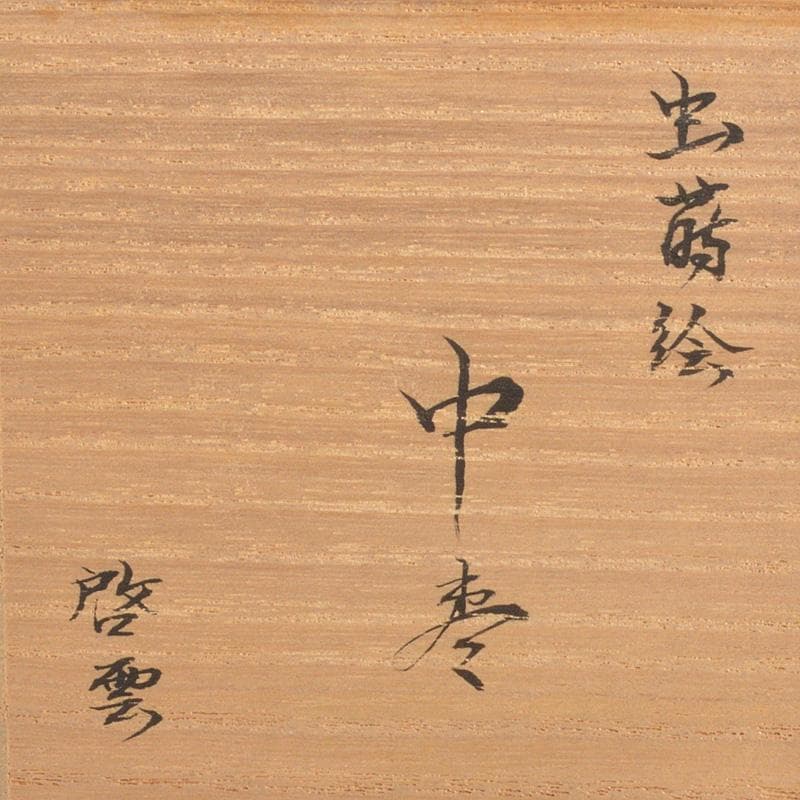 虫蒔絵
中棗
啓雲